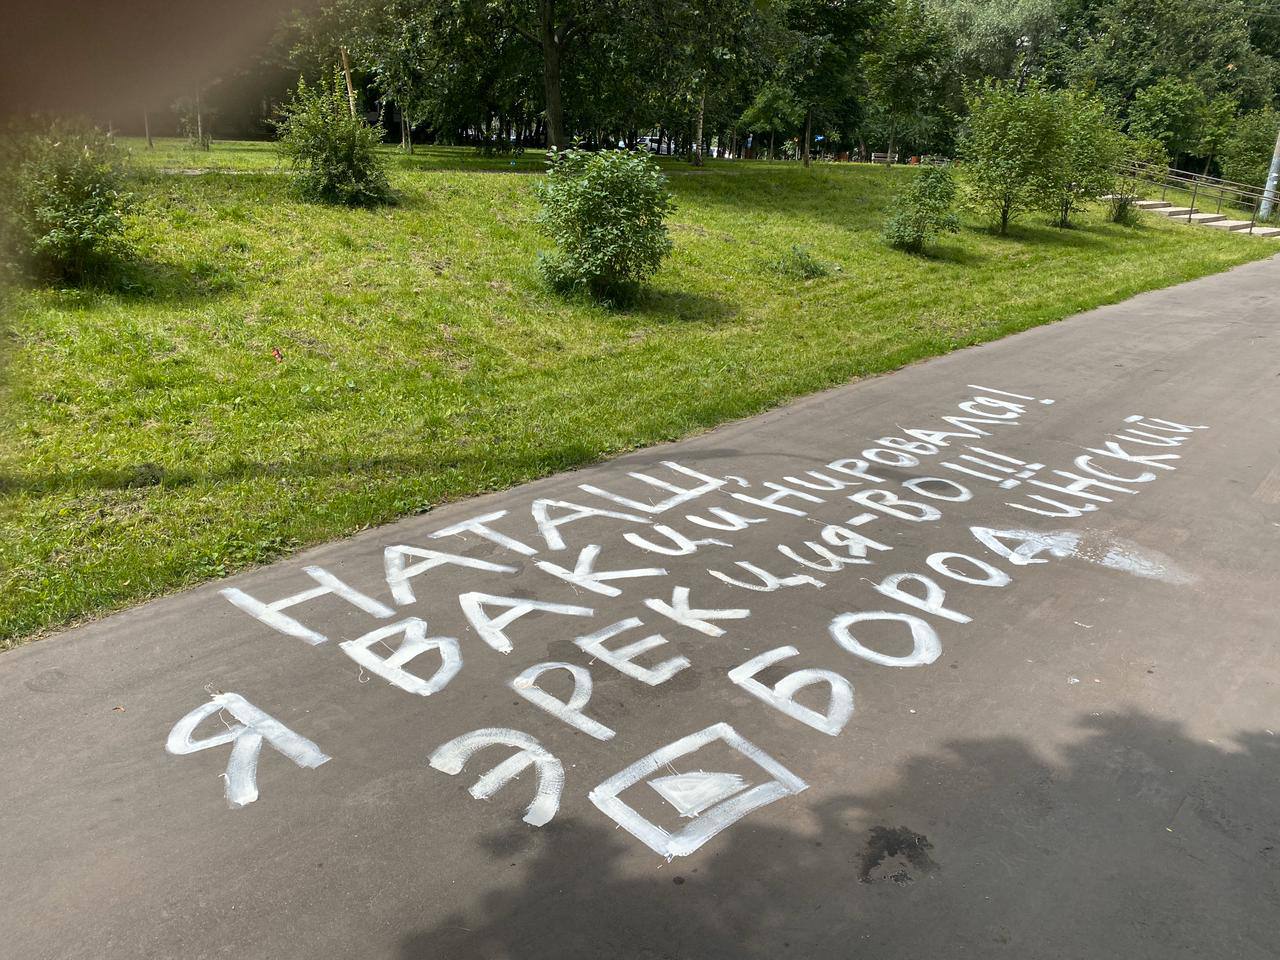 НАТАШ,
Я ВАКЦИНИРОВАЛСЯ!
ЭРЕКЦИЯ-ВО!!!
БОРОДИНСКИЙ